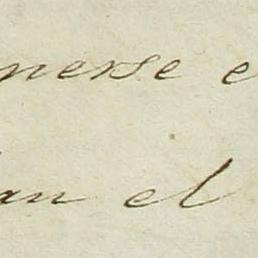 nerse e
an el